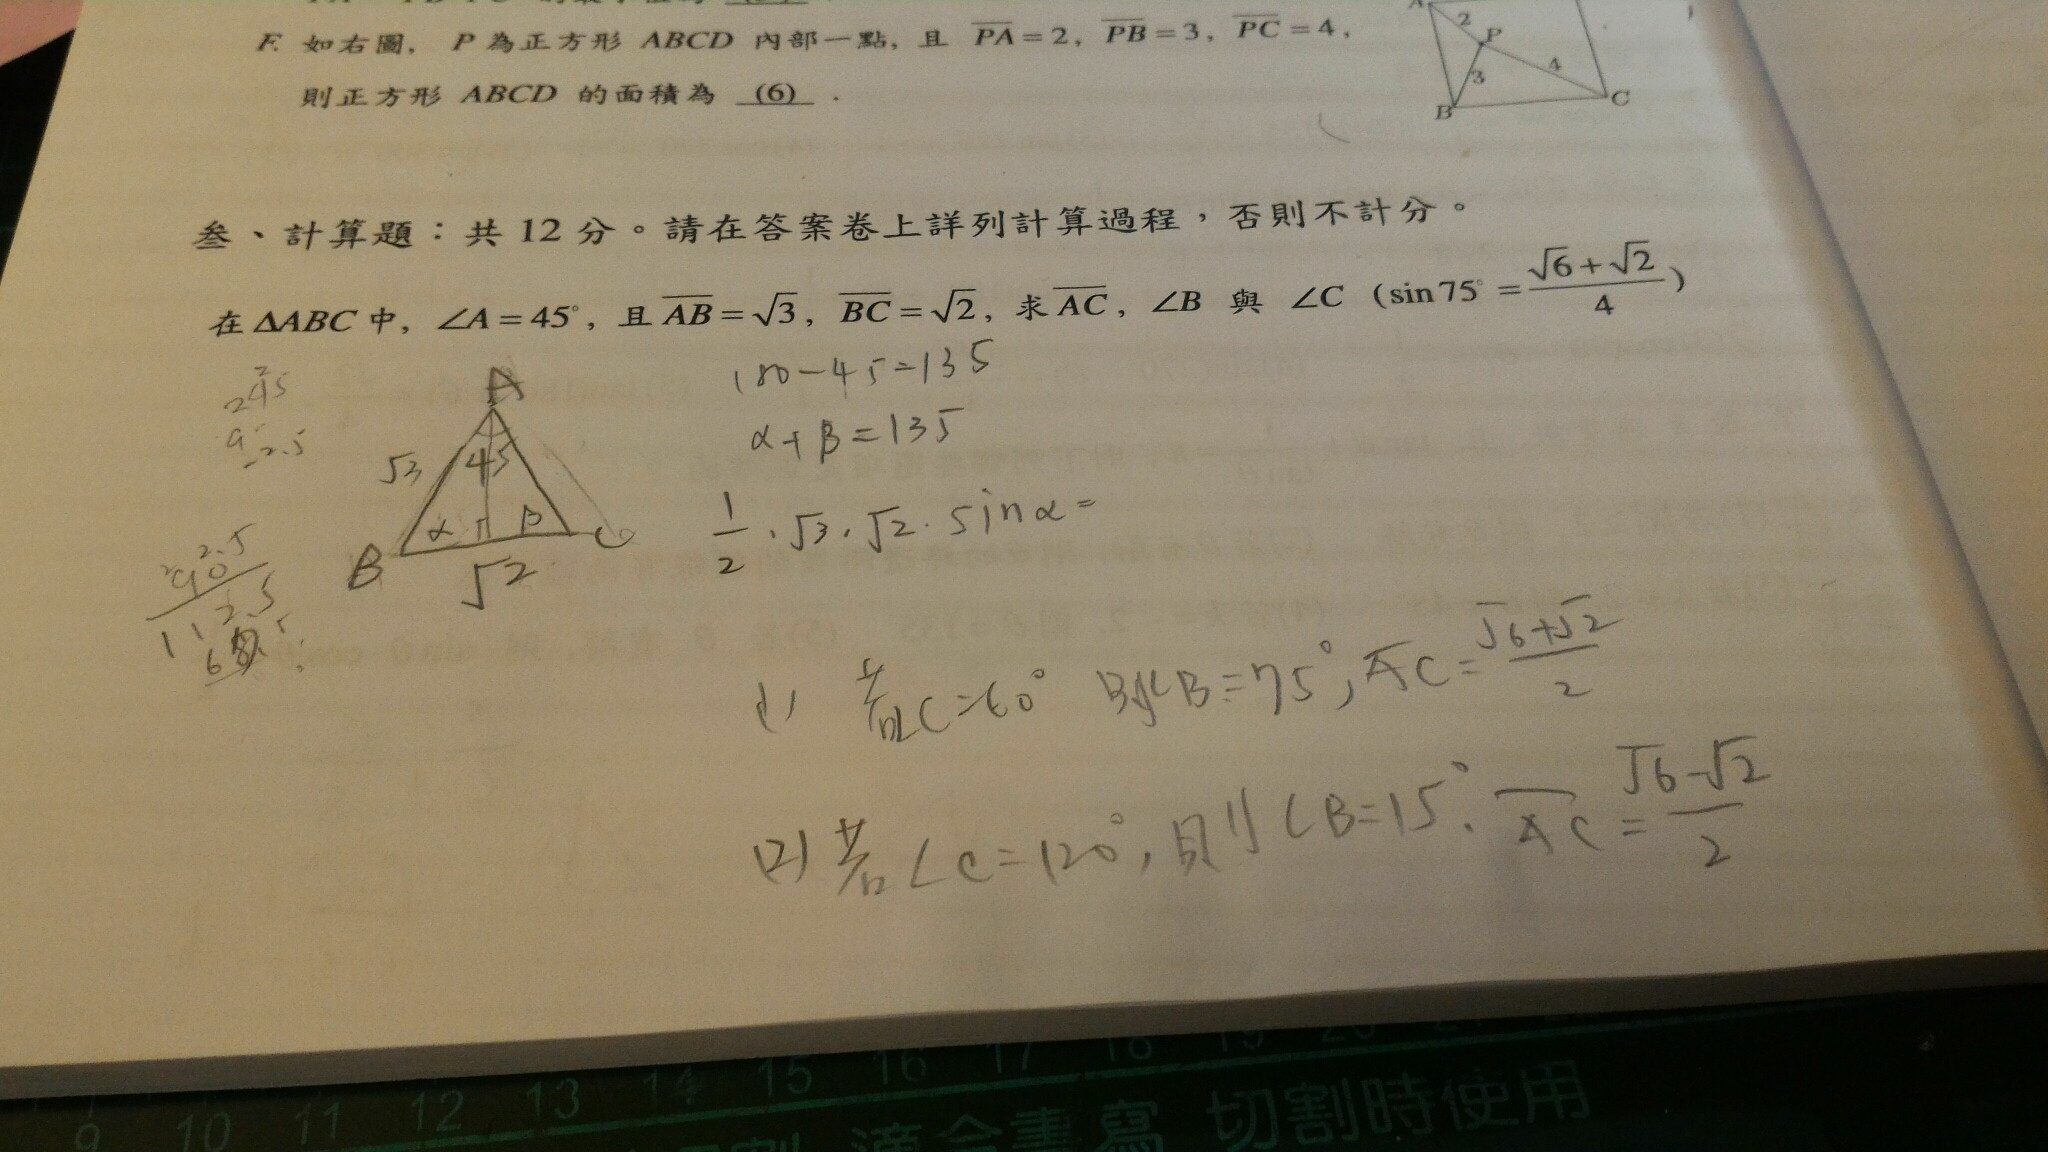 F. 如右圖, P 為正方形 ABCD 內部一點, 且 PA=2, PB=3, PC=4,
則正方形 ABCD 的面積為 (6) .
A
2
P
3
4
B
C
參、計算題：共 12 分。請在答案卷上詳列計算過程，否則不計分。
在 ΔABC 中, ∠A=45°, 且 AB=√3, BC=√2, 求 AC, ∠B 與 ∠C (sin75°=(√6+√2)/4)
A
√3
45
α
β
B
√2
C
180-45=135
α+β=135
1/2·√3·√2·sinα=
(1) 若∠C=60° 則∠B=75°, AC=(√6+√2)/2
(2) 若∠C=120°, 則∠B=15°. AC=(√6-√2)/2
9 10 11 12 13 14 15 16 17 18 19 20 21
適合書寫 切割時使用